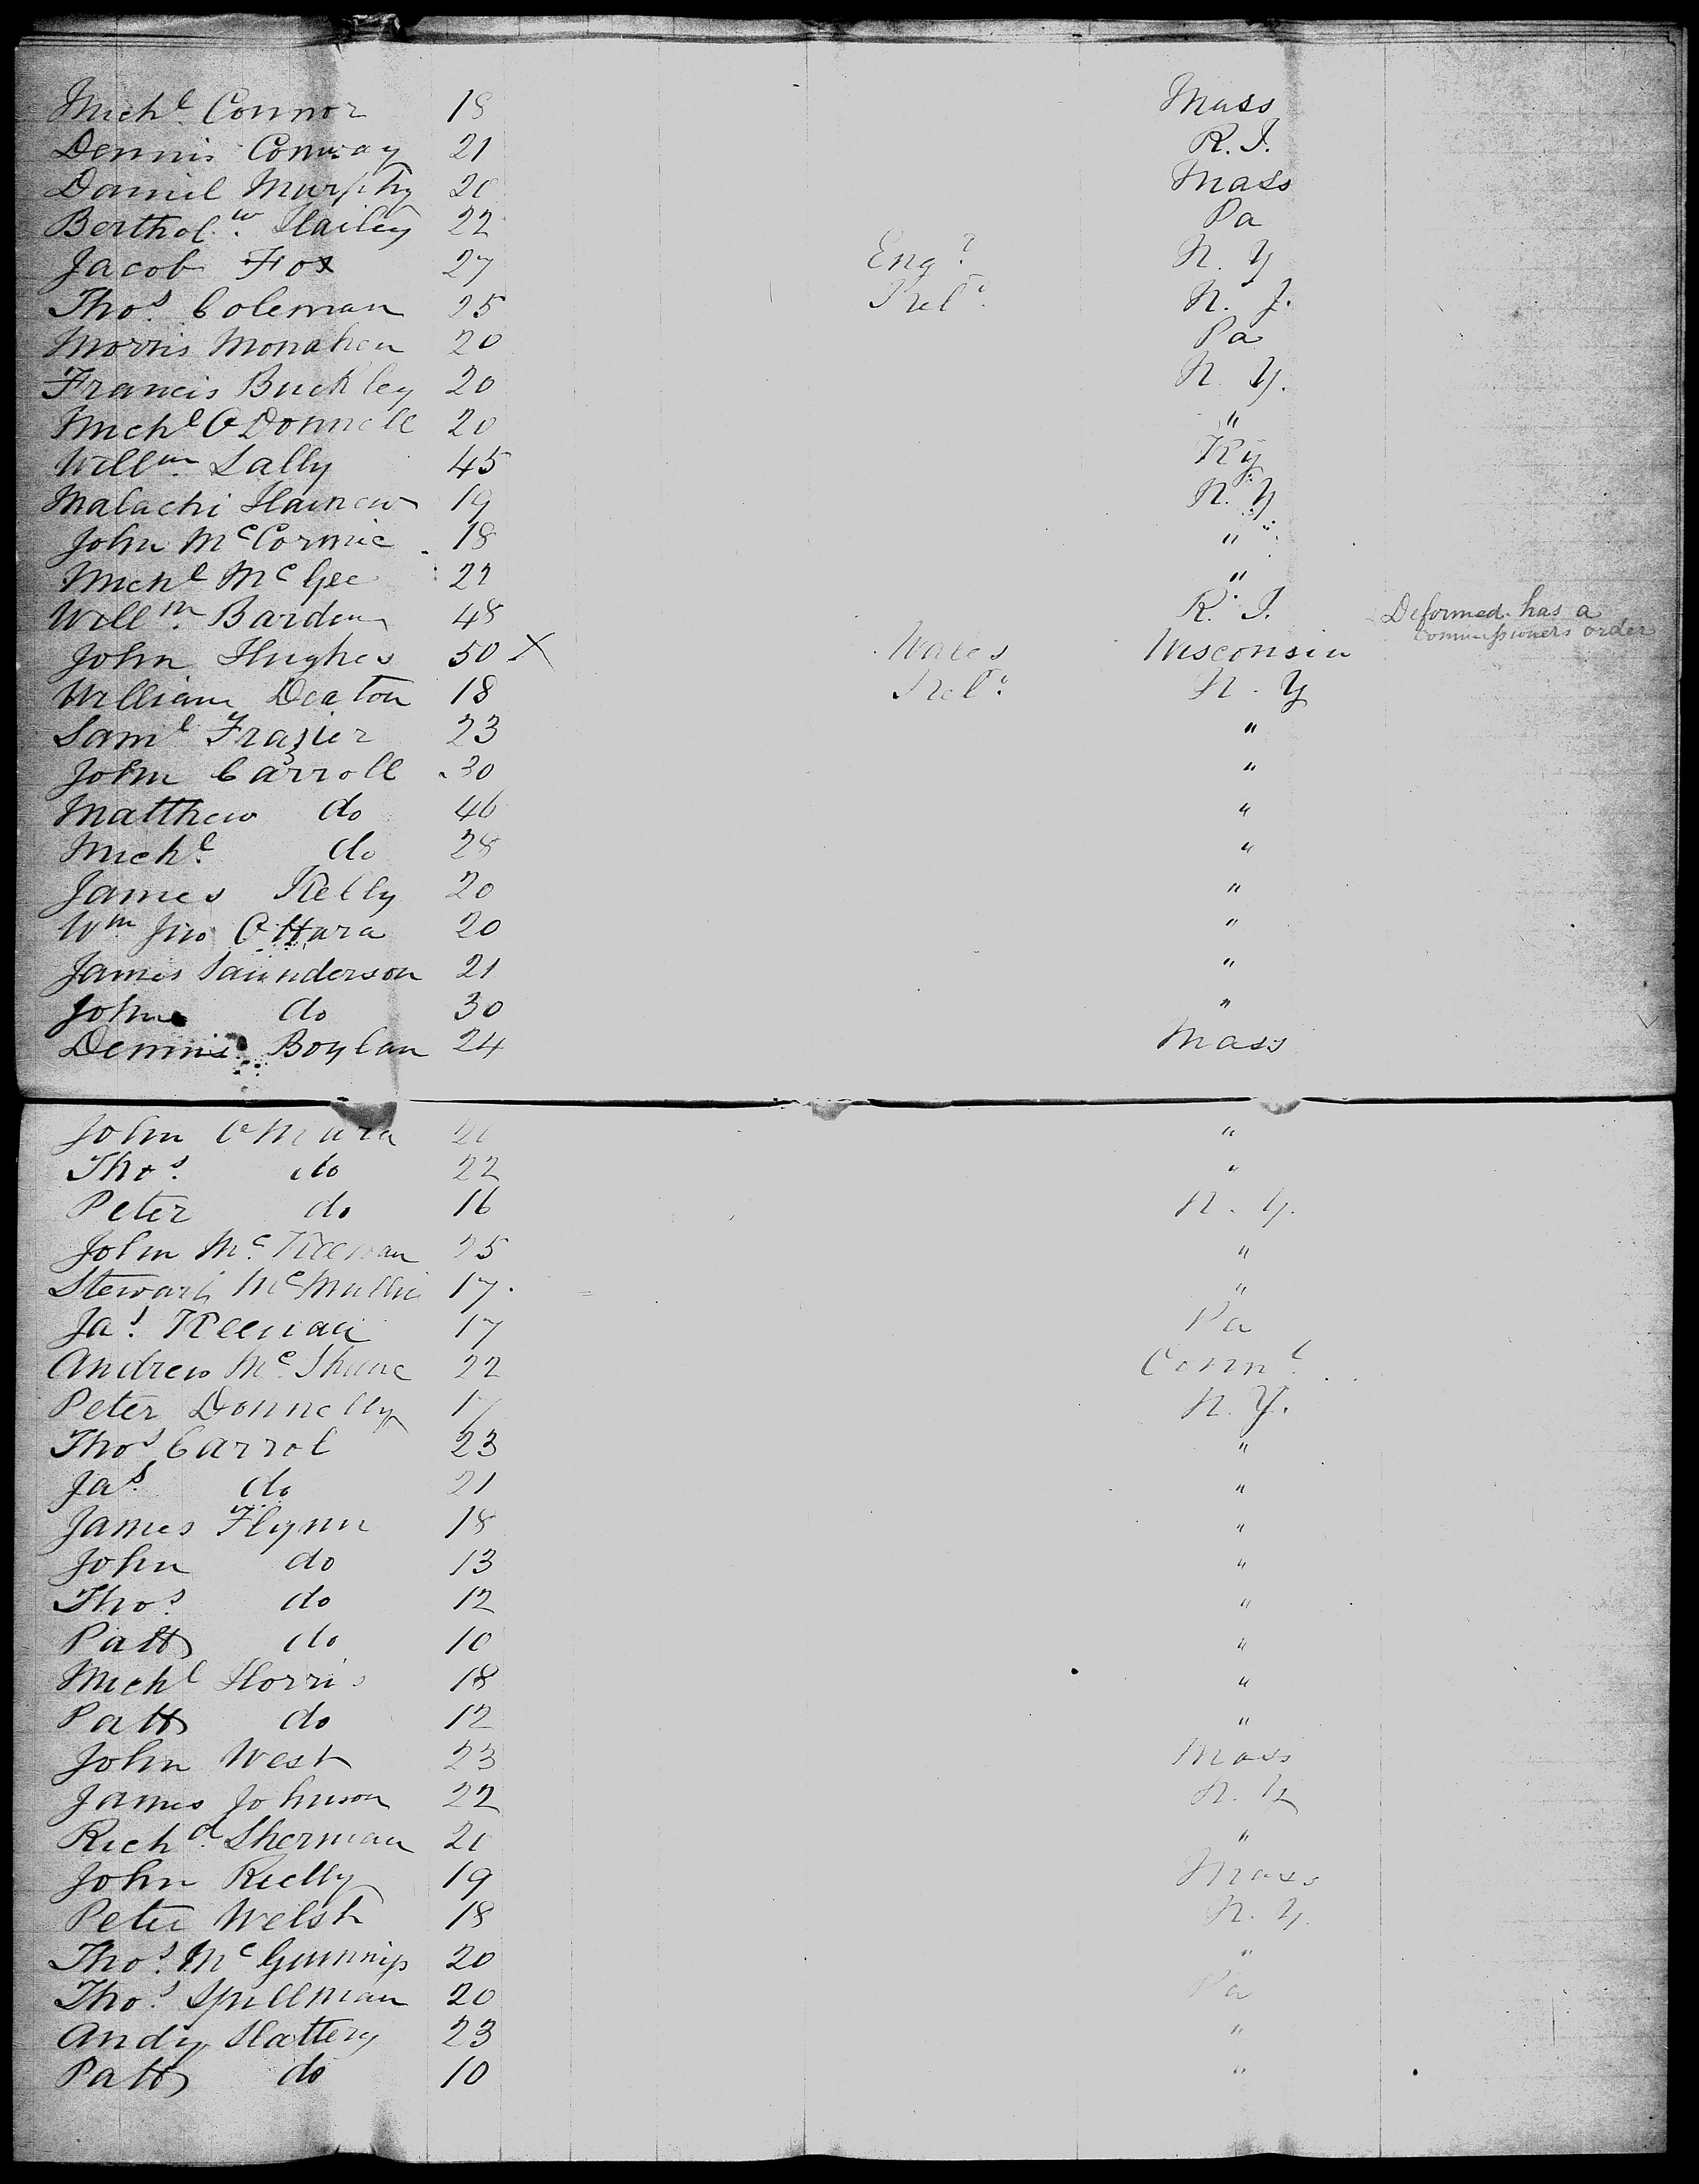 Mich^l Connor 18 Mass
Dennis Conway 21 R. I.
Daniel Murphy 20 Mass
Berthol^w Hailey 22 Pa
Jacob Fox 27 Eng^d N. Y
Tho^s Coleman 25 Irel^d N. J.
Morris Monahen 20 Pa
Francis Buckley 20 N. Y.
Mich^l O Donnell 20 "
Will^m Lally 45 Ky
Malachi 19 N. Y
John M^cCormic 18 "
Mich^l M^cGee 22 "
Will^m Barden 48 R. I. Deformed has a
Commissioners order
John Hughes 50 X Wales Wisconsin
William Deaton 18 Irel^d N. Y
Sam^l Frazier 23 "
John Carroll 30 "
Matthew do 46 "
Mich^l do 28 "
James Kelly 20 "
W^m Jno O Hara 20 "
James Saunderson 21 "
John do 30 "
Dennis Boylan 24 Mass
John O Mara "
Tho^s do 22 "
Peter do 16 N. Y.
John M^c Keenan 25 "
Stewart M^cMullin 17 "
Ja^s Keenan 17 Pa
Andrew M^cShane 22 Conn^t
Peter Donnelly 17 N. Y.
Tho^s Carrol 23 "
Ja^s do 21 "
James Flynn 18 "
John do 13 "
Tho^s do 12 "
Patt do 10 "
Mich^l Horris 18 "
Patt do 12 "
John West 23 Mass
James Johnson 22 N. Y
Rich^d Sherman 20 "
John Rielly 19 Mass
Peter Welsh 18 N. Y.
Tho^s M^c 20 "
Tho^s Spillman 20 Pa
Andy Slattery 23 "
Patt do 10 "